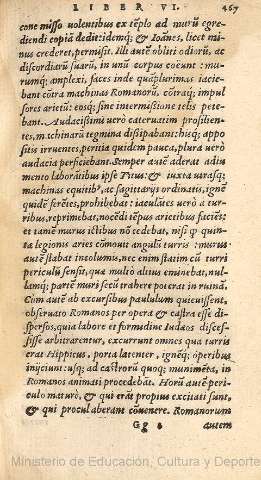 LIBER VI. 467
cone misso uolentibus ex tẽplo ad murũ egre-
diendi copiã dedit: idemq; & Ioãnes, licet mi-
nus crederet, permisit. Illi autẽ obliti odiorũ, ac
discordiarũ suarũ, in unũ corpus coëunt: mu-
rumq; amplexi, faces inde quàmplurimas iacie-
bant cõtra machinas Romanorũ, cõtraq; impul
sores arietũ: eosq; sine intermissione telis pete-
bant. Audacissimi uerò cateruatim prosilien-
tes, machinarum tegmina dissipabant: hisq; appo-
sitis irruentes, peritia quidem pauca, plura uerò
audacia perficiebant. Semper autẽ aderat adiu
mento laborãtibus ipse Titus: & iuxta utrasq;
machinas equitib⁹, ac sagittarijs ordinatis, ignẽ
quidẽ ferẽtes, prohibebat: iaculãtes uerò à tur-
ribus, reprimebat, nocẽdi tẽpus arietibus faciẽs:
et tamẽ murus ictibus nõ cedebat, nisi ꝙ quin-
ta legionis aries cõmouit angulũ turris: murus
autẽ stabat incolumis, nec enim statim cũ turri
periculũ sensit, quæ multò altius eminebat, nul-
lamq; partẽ muri secũ trahere poterat in ruinã.
Cum autẽ ab excursibus paululum quieuissent,
obseruato Romanos per opera & castra esse di-
spersos, quia labore et formidine Iudæos disces-
sisse arbitrarentur, excurrunt omnes qua turris
erat Hippicus, porta latenter, ignẽq; operibus
inijciunt: usq; ad castrorũ quoq; munimẽta, in
Romanos animati procedebãt. Horũ autẽ peri-
culo maturò, & qui erãt propius excitati sunt,
& qui procul aberant conuenere. Romanorum
Gg 2 autem
Ministerio de Educación, Cultura y Deporte